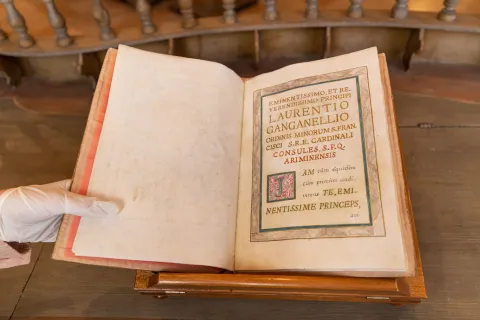 EMINENTISSIMO, ET RE-
VERENDISSIMO PRINCIPI
LAURENTIO
GANGANELLIO
ORDINIS MINORUM S. FRAN-
CISCI S.R.E. CARDINALI
CONSULES, S.P.Q.
ARIMINENSIS
JAM idem
TE, EMI-
NENTISSIME PRINCEPS,